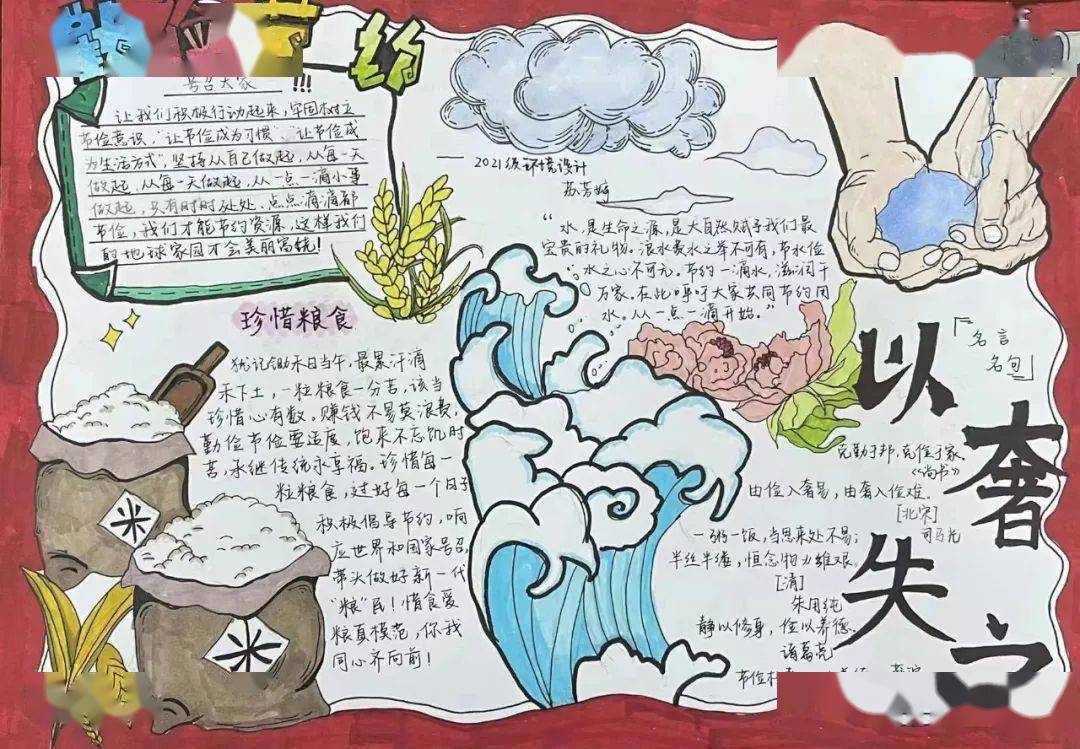 号召大家!!!
让我们积极行动起来,牢固树立
节俭意识,"让节俭成为习惯","让节俭成
为生活方式",坚持从自己做起,从每一天
做起,从每一天做起,从一点一滴小事
做起,只有时时处处、点点滴滴都
节俭,我们才能节约资源,这样我们
的地球家园才会美丽富饶!
2021级环境设计
"水,是生命之源,是大自然赋予我们最
宝贵的礼物。浪水费水之举不可有,节水俭
水之心不可无。节约一滴水,滋润千
万家。在此呼吁大家共同节约用
水。从一点一滴开始。"
珍惜粮食
犹记锄禾日当午,最累汗滴
禾下土,一粒粮食一分苦,该当
珍惜心有数。赚钱不易莫浪费,
勤俭节俭要适度,饱来不忘饥时
苦,承继传统永享福。珍惜每一
粒粮食,过好每一个日子
积极倡导节约,响
应世界和国家号召,
带头做好新一代
"粮"民!惜食爱
粮真模范,你我
同心齐向前!
米
米
「名言
名句」
以奢
失之
克勤于邦,克俭于家.
《尚书》
由俭入奢易,由奢入俭难.
[北宋]
司马光
一粥一饭,当思来处不易;
半丝半缕,恒念物力维艰.
[清]
朱用纯
静以修身,俭以养德.
诸葛亮